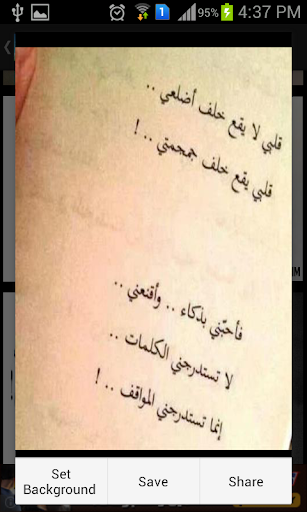 95% 4:37 PM
قلبي لا يقع خلف أضلعي ..
قلبي يقع خلف جمجمتي .. !
فأحبّني بذكاء .. وأقنعني ..
لا تستدرجني الكلمات ..
إنما تستدرجني المواقف .. !
Set Background
Save
Share